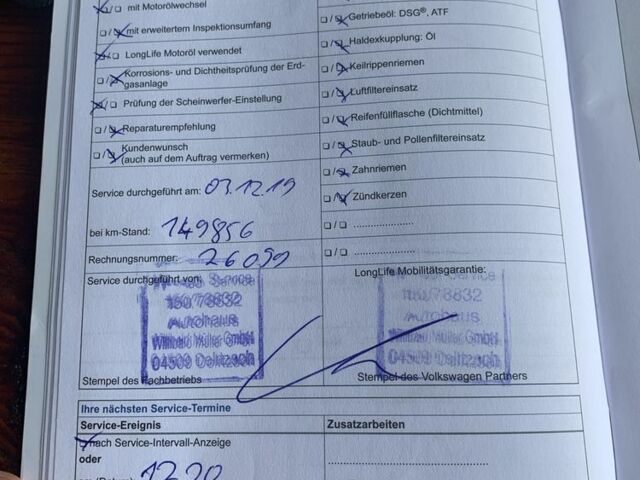 mit Motorölwechsel
mit erweitertem Inspektionsumfang
LongLife Motoröl verwendet
Korrosions- und Dichtheitsprüfung der Erd-
gasanlage
Prüfung der Scheinwerfer-Einstellung
Reparaturempfehlung
Kundenwunsch
(auch auf dem Auftrag vermerken)
Service durchgeführt am: 03.12.19
bei km-Stand: 149856
Rechnungsnummer: 26099
Service durchgeführt von:
Service
150/78832
Autohaus
Müller GmbH
04509 Delitzsch
Stempel des Fachbetriebs
Getriebeöl: DSG®, ATF
Haldexkupplung: Öl
Keilrippenriemen
Luftfiltereinsatz
Reifenfüllflasche (Dichtmittel)
Staub- und Pollenfiltereinsatz
Zahnriemen
Zündkerzen
....................
....................
LongLife Mobilitätsgarantie:
Service
78832
Autohaus
Müller GmbH
04509 Delitzsch
Stempel des Volkswagen Partners
Ihre nächsten Service-Termine
Service-Ereignis
Zusatzarbeiten
nach Service-Intervall-Anzeige
oder
12.20